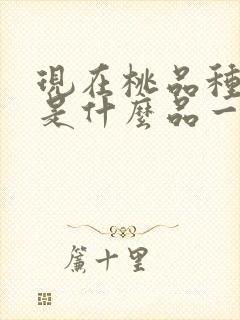 現在桃品種
是什麼品一
簾十里